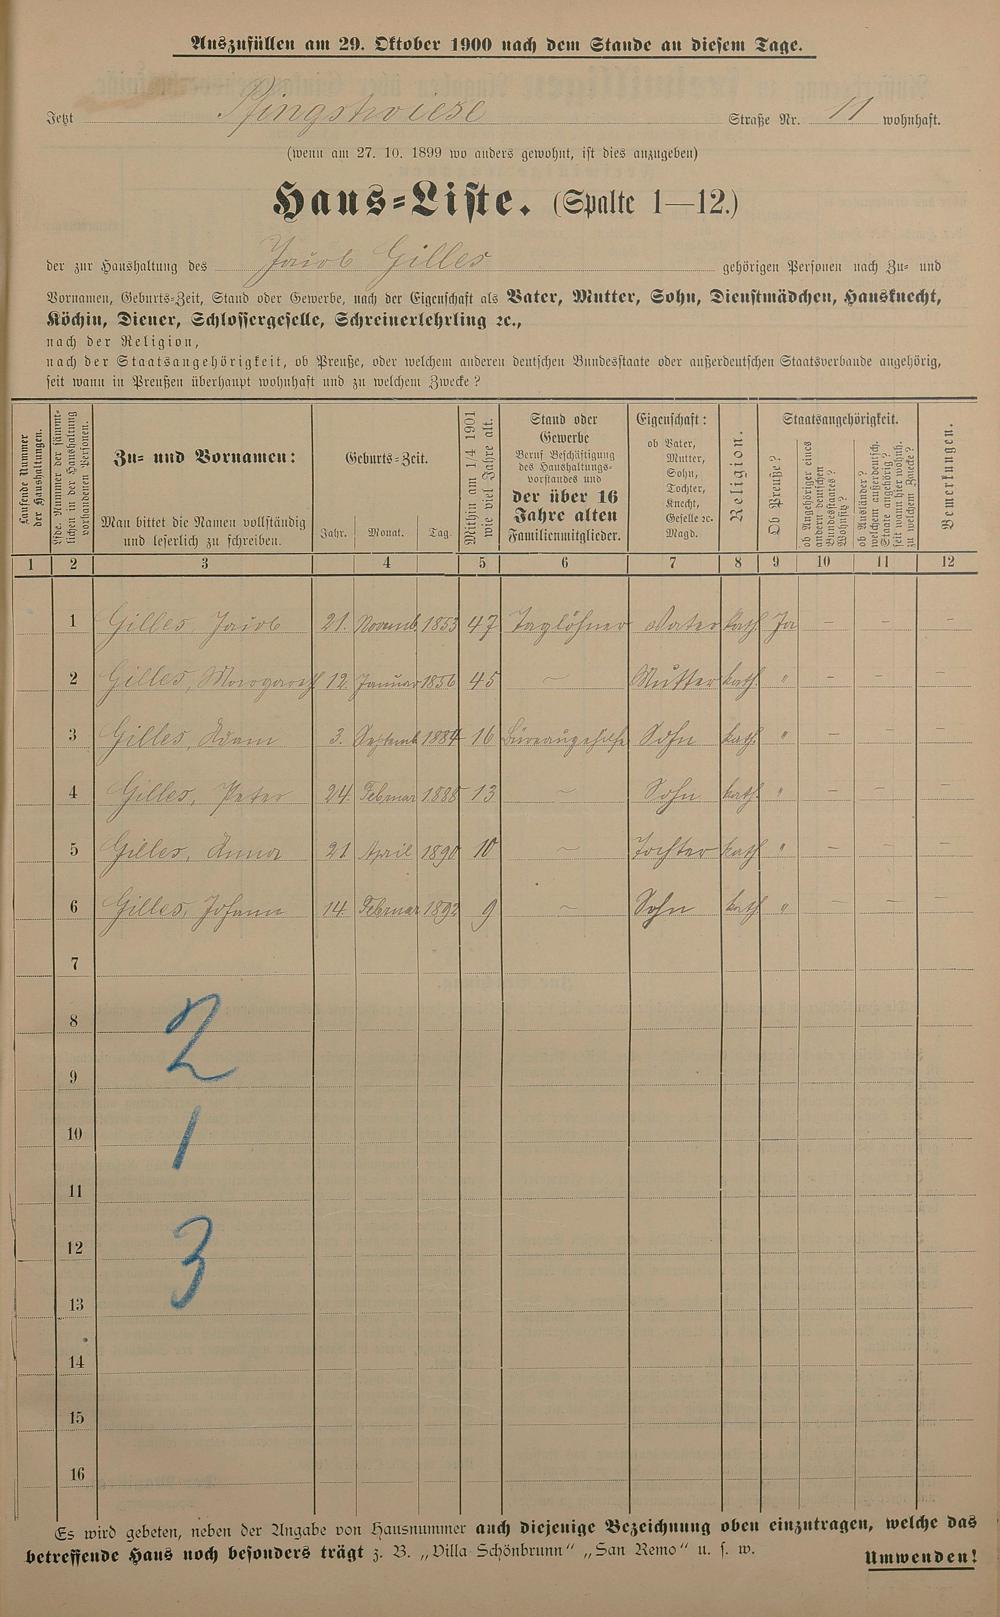 Auszufüllen am 29. Oktober 1900 nach dem Stande an diesem Tage.
Jetzt Pfingstwiese Straße Nr. 11 wohnhaft.
(wenn am 27. 10. 1899 wo anders gewohnt, ist dies anzugeben)
Haus-Liste. (Spalte 1—12.)
der zur Haushaltung des Jacob Gilles gehörigen Personen nach Zu- und
Vornamen, Geburts-Zeit, Stand oder Gewerbe, nach der Eigenschaft als Vater, Mutter, Sohn, Dienstmädchen, Hausknecht,
Köchin, Diener, Schlossergeselle, Schreinerlehrling ꝛc.,
nach der Religion,
nach der Staatsangehörigkeit, ob Preuße, oder welchem anderen deutschen Bundesstaate oder außerdeutschen Staatsverbande angehörig,
seit wann in Preußen überhaupt wohnhaft und zu welchem Zwecke?
Laufende Nummer
der Haushaltungen.
Lfde. Nummer der sämmt-
lichen in der Haushaltung
vorhandenen Personen.
Zu- und Vornamen:
Man bittet die Namen vollständig
und leserlich zu schreiben.
Geburts-Zeit.
Jahr. Monat. Tag.
Mithin am 1/4 1901
wie viel Jahre alt.
Stand oder
Gewerbe
Beruf Beschäftigung
des Haushaltungs-
vorstandes und
der über 16
Jahre alten
Familienmitglieder.
Eigenschaft:
ob Vater,
Mutter,
Sohn,
Tochter,
Knecht,
Geselle ꝛc.
Magd.
Religion.
Staatsangehörigkeit.
Ob Preuße?
ob Angehöriger eines
andern deutschen
Bundesstaates?
Wohnsitz?
ob Ausländer?
welchem außerdeutsch.
Staate angehörig?
seit wann hier wohnh.
zu welchem Zwecke?
Bemerkungen.
1 2 3 4 5 6 7 8 9 10 11 12
1 Gilles, Jacob 21. Novemb. 1853 47 Taglöhner Vater kath. Ja — — —
2 Gilles, Margareth 12. Januar 1856 45 ~ Mutter kath. " — — —
3 Gilles, Adam 3. Septemb. 1884 16 Büreaugehilfe Sohn kath. " — — —
4 Gilles, Peter 24. Februar 1888 13 ~ Sohn kath. " — — —
5 Gilles, Anna 21 April 1890 10 ~ Tochter kath. " — — —
6 Gilles, Johann 14. Februar 1892 9 ~ Sohn kath. " — — —
7
8
2
9
10
1
11
12
3
13
14
15
16
Es wird gebeten, neben der Angabe von Hausnummer auch diejenige Bezeichnung oben einzutragen, welche das
betreffende Haus noch besonders trägt z. B. „Villa Schönbrunn“ „San Remo“ u. s. w.
Umwenden!